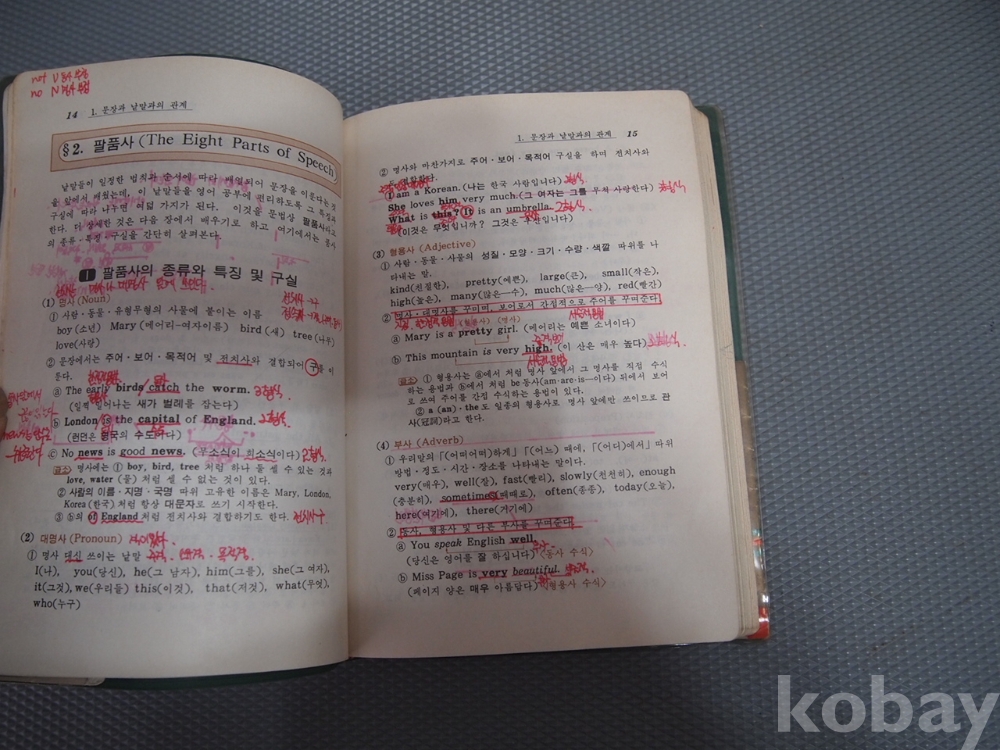 not V 부정
no N 부정
14 1. 문장과 낱말과의 관계
§2. 팔품사 (The Eight Parts of Speech)
낱말들이 일정한 법칙과 순서에 따라 배열되어 문장을 이룬다는 것
을 앞에서 배웠는데, 이 낱말들을 영어 공부에 편리하도록 그 특징과
구실에 따라 나누면 여덟 가지가 된다. 이것을 문법상 팔품사라고
한다. 더 상세한 것은 다음 장에서 배우기로 하고 여기에서는 품사
의 종류·특징·구실을 간단히 살펴본다.
1 팔품사의 종류와 특징 및 구실
(1) 명사 (Noun)
① 사람·동물·유형무형의 사물에 붙이는 이름
boy (소년) Mary (메어리―여자이름) bird (새) tree (나무)
love(사랑)
② 문장에서는 주어·보어·목적어 및 전치사와 결합되어 구를 이
룬다.
ⓐ The early birds catch the worm. 3형식
(일찍 일어나는 새가 벌레를 잡는다)
ⓑ London is the capital of England. 2형식
(런던은 영국의 수도이다)
ⓒ No news is good news. (무소식이 희소식이다) 2형식
주의 명사에는 ① boy, bird, tree 처럼 하나 둘 셀 수 있는 것과
love, water (물) 처럼 셀 수 없는 것이 있다.
② 사람의 이름·지명·국명 따위 고유한 이름은 Mary, London,
Korea (한국) 처럼 항상 대문자로 쓰기 시작한다.
③ ⓑ의 of England 처럼 전치사와 결합하기도 한다. 전치사구
(2) 대명사 (Pronoun)
① 명사 대신 쓰이는 낱말
I(나), you(당신), he(그 남자), him(그를), she(그 여자),
it(그것), we(우리들) this(이것), that(저것), what(무엇),
who(누구)
1. 문장과 낱말과의 관계 15
② 명사와 마찬가지로 주어·보어·목적어 구실을 하며 전치사와
도 결합한다.
I am a Korean. (나는 한국 사람입니다) 2형식
She loves him very much. (그 여자는 그를 무척 사랑한다) 3형식
What is this? It is an umbrella. 2형식
(이것은 무엇입니까? 그것은 우산입니다)
(3) 형용사 (Adjective)
① 사람·동물·사물의 성질·모양·크기·수량·색깔 따위를 나
타내는 말.
kind(친절한), pretty(예쁜), large(큰), small(작은),
high(높은), many(많은―수), much(많은―양), red(빨간)
② 명사·대명사를 꾸미며, 보어로서 간접적으로 주어를 꾸며준다.
〈형용사〉 〈명사〉
ⓐ Mary is a pretty girl. (메어리는 예쁜 소녀이다)
ⓑ This mountain is very high. (이 산은 매우 높다)
주의 ① 형용사는 ⓐ에서 처럼 명사 앞에서 그 명사를 직접 수식
하는 용법과 ⓑ에서 처럼 be동사(am·are·is―이다) 뒤에서 보어
로 쓰여 주어를 간접 수식하는 용법이 있다.
② a (an)·the도 일종의 형용사로 명사 앞에만 쓰이므로 관
사(冠詞)라고 한다.
(4) 부사 (Adverb)
① 우리말의 「(어떠어떠)하게」「(어느) 때에」「(어디)에서」 따위
방법·정도·시간·장소를 나타내는 말이다.
very(매우), well(잘), fast(빨리), slowly(천천히), enough
(충분히), sometimes(때때로), often(종종), today(오늘),
here(여기에) there(거기에)
② 동사, 형용사 및 다른 부사를 꾸며준다.
ⓐ You speak English well.
(당신은 영어를 잘 하십니다) 〈동사 수식〉
ⓑ Miss Page is very beautiful.
(페이지 양은 매우 아름답다) 〈형용사 수식〉
kobay